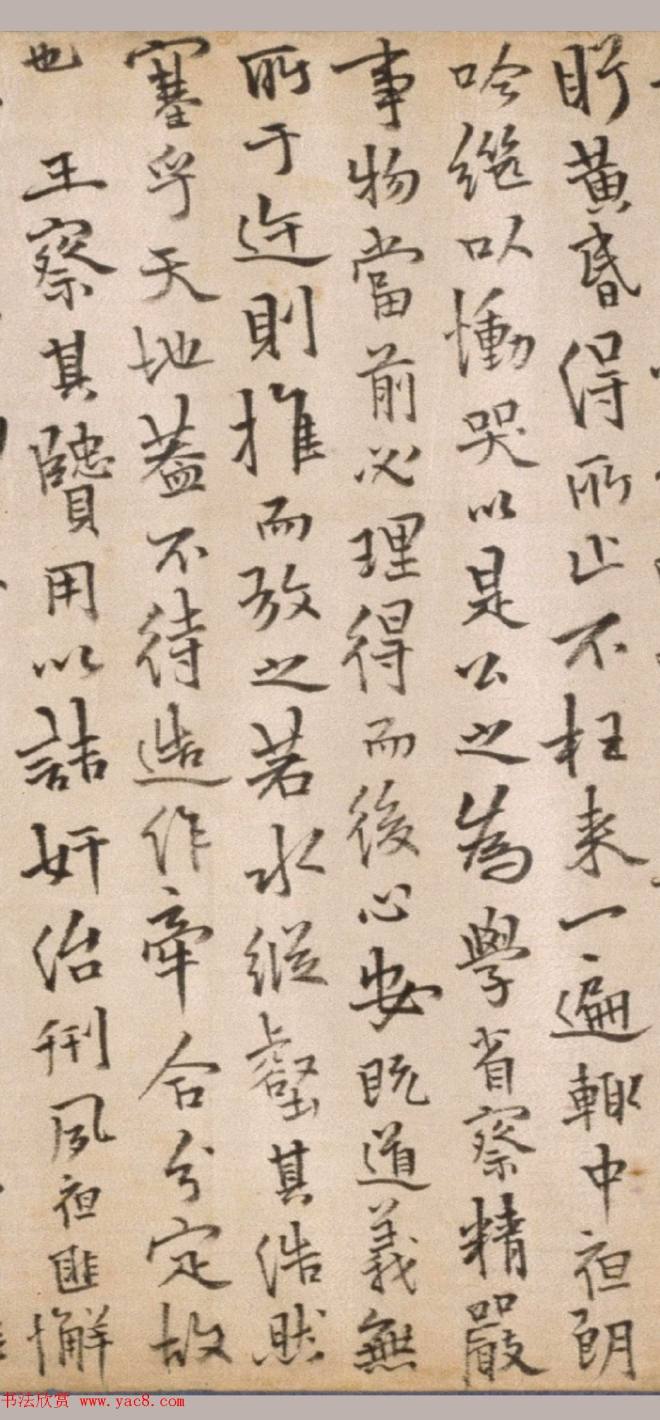 盱黄昏得所止不枉来一遍輙中夜朗
吟继以慟哭以是公之為學省察精嚴
事物當前必理得而後心安既道義無
所于迕則推而放之若水縱壑其浩然
塞乎天地蓋不待造作牽合分定故
也 王察其贤用以詰奸治刑夙夜匪懈
书法欣赏 www.yac8.com